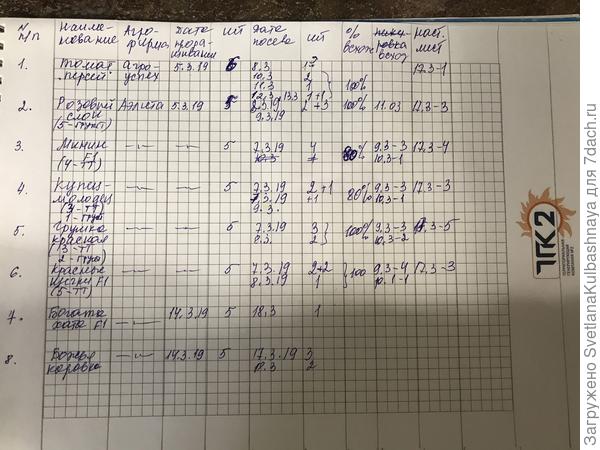 N п/п Наиме-нование Агро-фирма Дата прора-щивания шт Дата посева шт % всхож всход наст. лист
1. Томат Агро- 5.3.19 6 8.3 1
персей успех 10.3 2 100% 17.3-1
11.3 1
12.3 13.3 1+1
2. Розовый Аэлита 5.3.19 5 8.3.19 2+3 100% 11.03 17.3-3
слон 9.3.19
(5-грунт)
3. Минин —"— —"— 5 7.3.19 4 80% 9.3-3 17.3-4
F1 10.3 10.3-1
4. Купец- —"— —"— 5 7.3.19 2+1 80% 9.3-3 17.3-3
молодец 7.3.19 +1 10.3-1
9.3.
5. Грушка —"— —"— 5 7.3.19 3 100% 9.3-3 17.3-5
красная 8.3. 2 10.3-2
6. Красные —"— —"— 5 7.3.19 2+2 100 9.3-4 17.3-3
F1 8.3.19 1
(5-ТТ)
7. Богата —"— 14.3.19 5 18.3 1
хата F1
8. Божья —"— 14.3.19 5 17.3.19 3
коровка 2
ТГК2
Загружено SvetlanaKulbashnaya для 7dach.ru